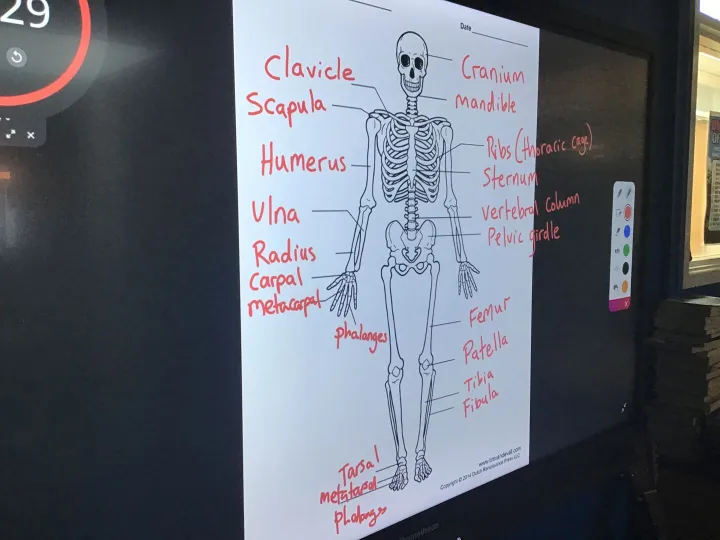 29
Date
Clavicle
Cranium
Scapula
mandible
Ribs (thoraric cage)
Humerus
Sternum
Ulna
vertebral column
Pelvic girdle
Radius
Carpal
metacarpal
phalanges
Femur
Patella
Tibia
Fibula
Tarsal
metatarsal
phalanges
Copyright © 2014 Dutch Renaissance Press LLC